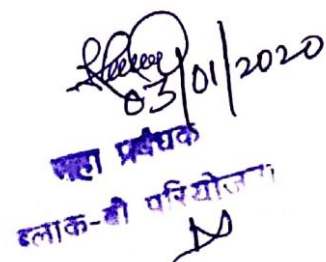 03/01/2020
महा प्रबंधक
ब्लाक-बी परियोजना